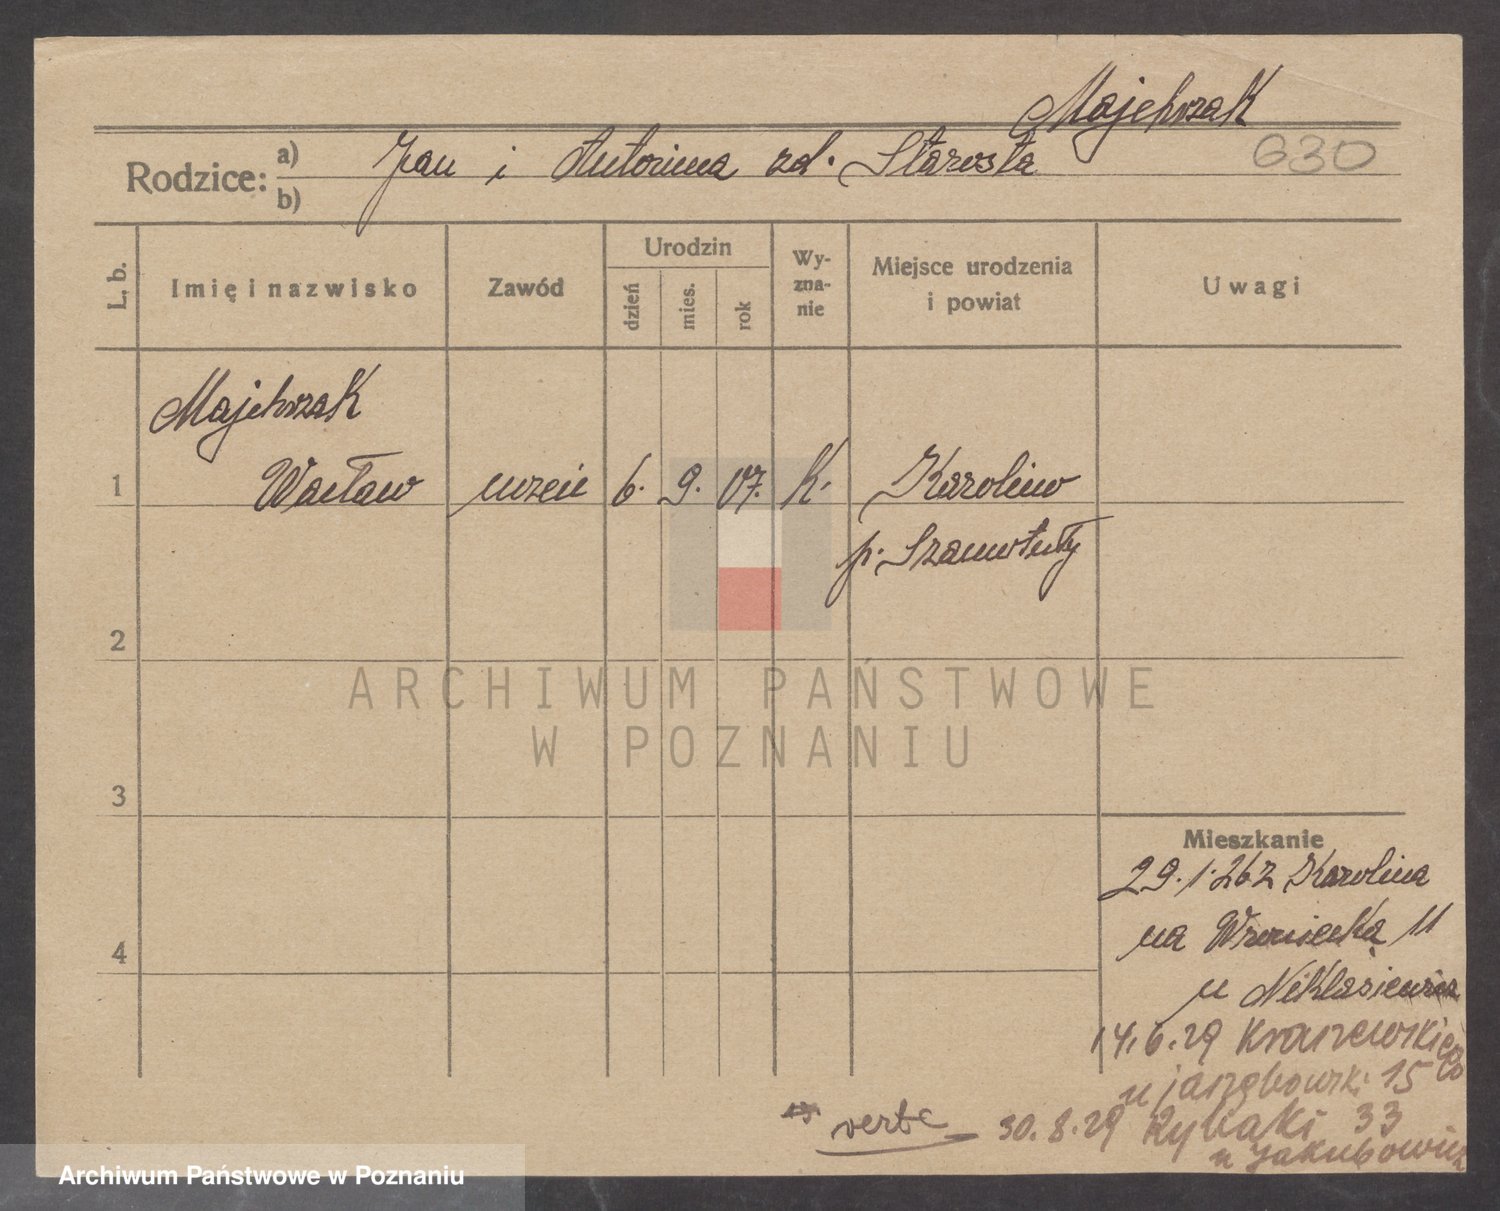 Majchrzak
Rodzice: a) Jan i Antonina zd. Starosta
b)
630
L. b.
Imię i nazwisko
Zawód
Urodzin
dzień
mies.
rok
Wy-
zna-
nie
Miejsce urodzenia
i powiat
Uwagi
Majchrzak
1 Wacław uczeń 6. 9. 07. K. Karolin
p. Szamotuły
2
3
4
Mieszkanie
29.1.26 z Karolina
na Wroniecką 11
u Niklasiewicz
14.6.29 Kraszewskiego
u Jarzębowski 15
30.8.29 Rybaki 33
u Jakubowicz
verte
ARCHIWUM PAŃSTWOWE
W POZNANIU
Archiwum Państwowe w Poznaniu